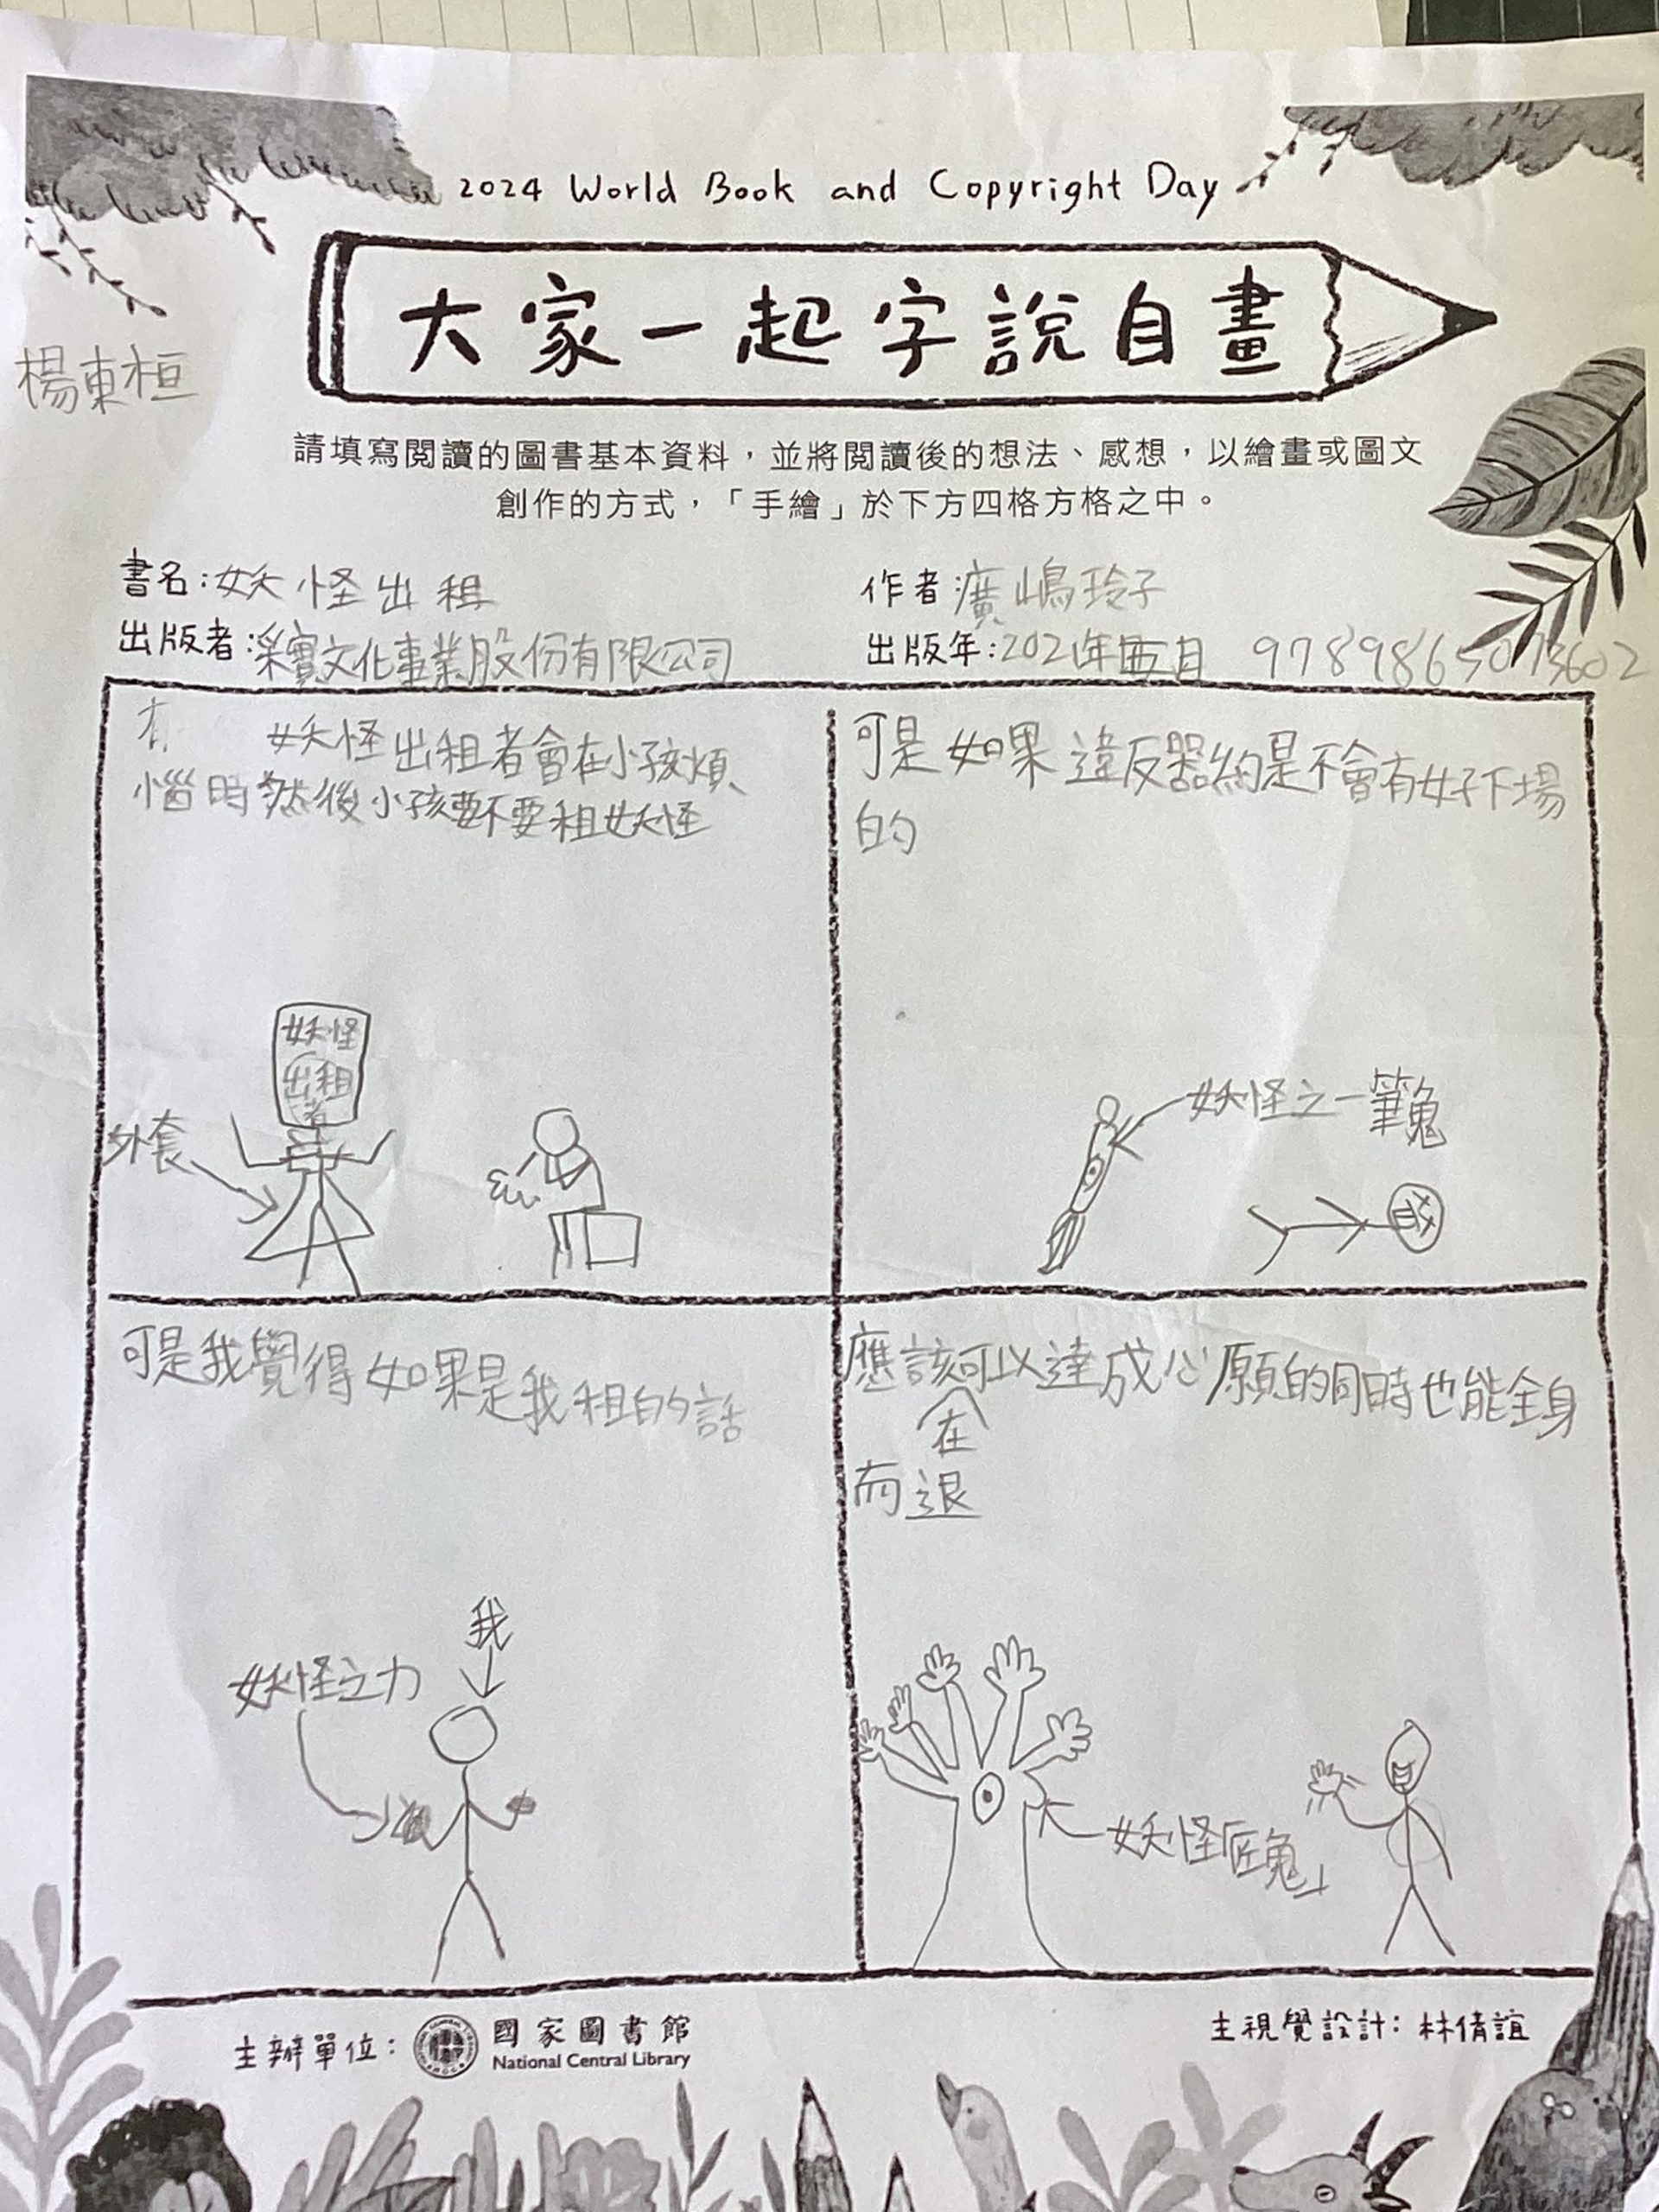 2024 World Book and Copyright Day
大家一起字說自畫
楊東桓
請填寫閱讀的圖書基本資料，並將閱讀後的想法、感想，以繪畫或圖文
創作的方式，「手繪」於下方四格方格之中。
書名：妖怪出租
作者：廣嶋玲子
出版者：采實文化事業股份有限公司
出版年：2021年五月 9789865073602
妖怪出租者會在小孩煩
惱時然後小孩要不要租妖怪
妖怪
出租
者
外套
可是如果違反器約是不會有好下場
的
妖怪之一筆鬼
可是我覺得如果是我租的話
我
妖怪之力
應該可以達成心願的同時也能全身
在
而退
妖怪匠鬼
主辦單位：國家圖書館
National Central Library
主視覺設計：林倩誼